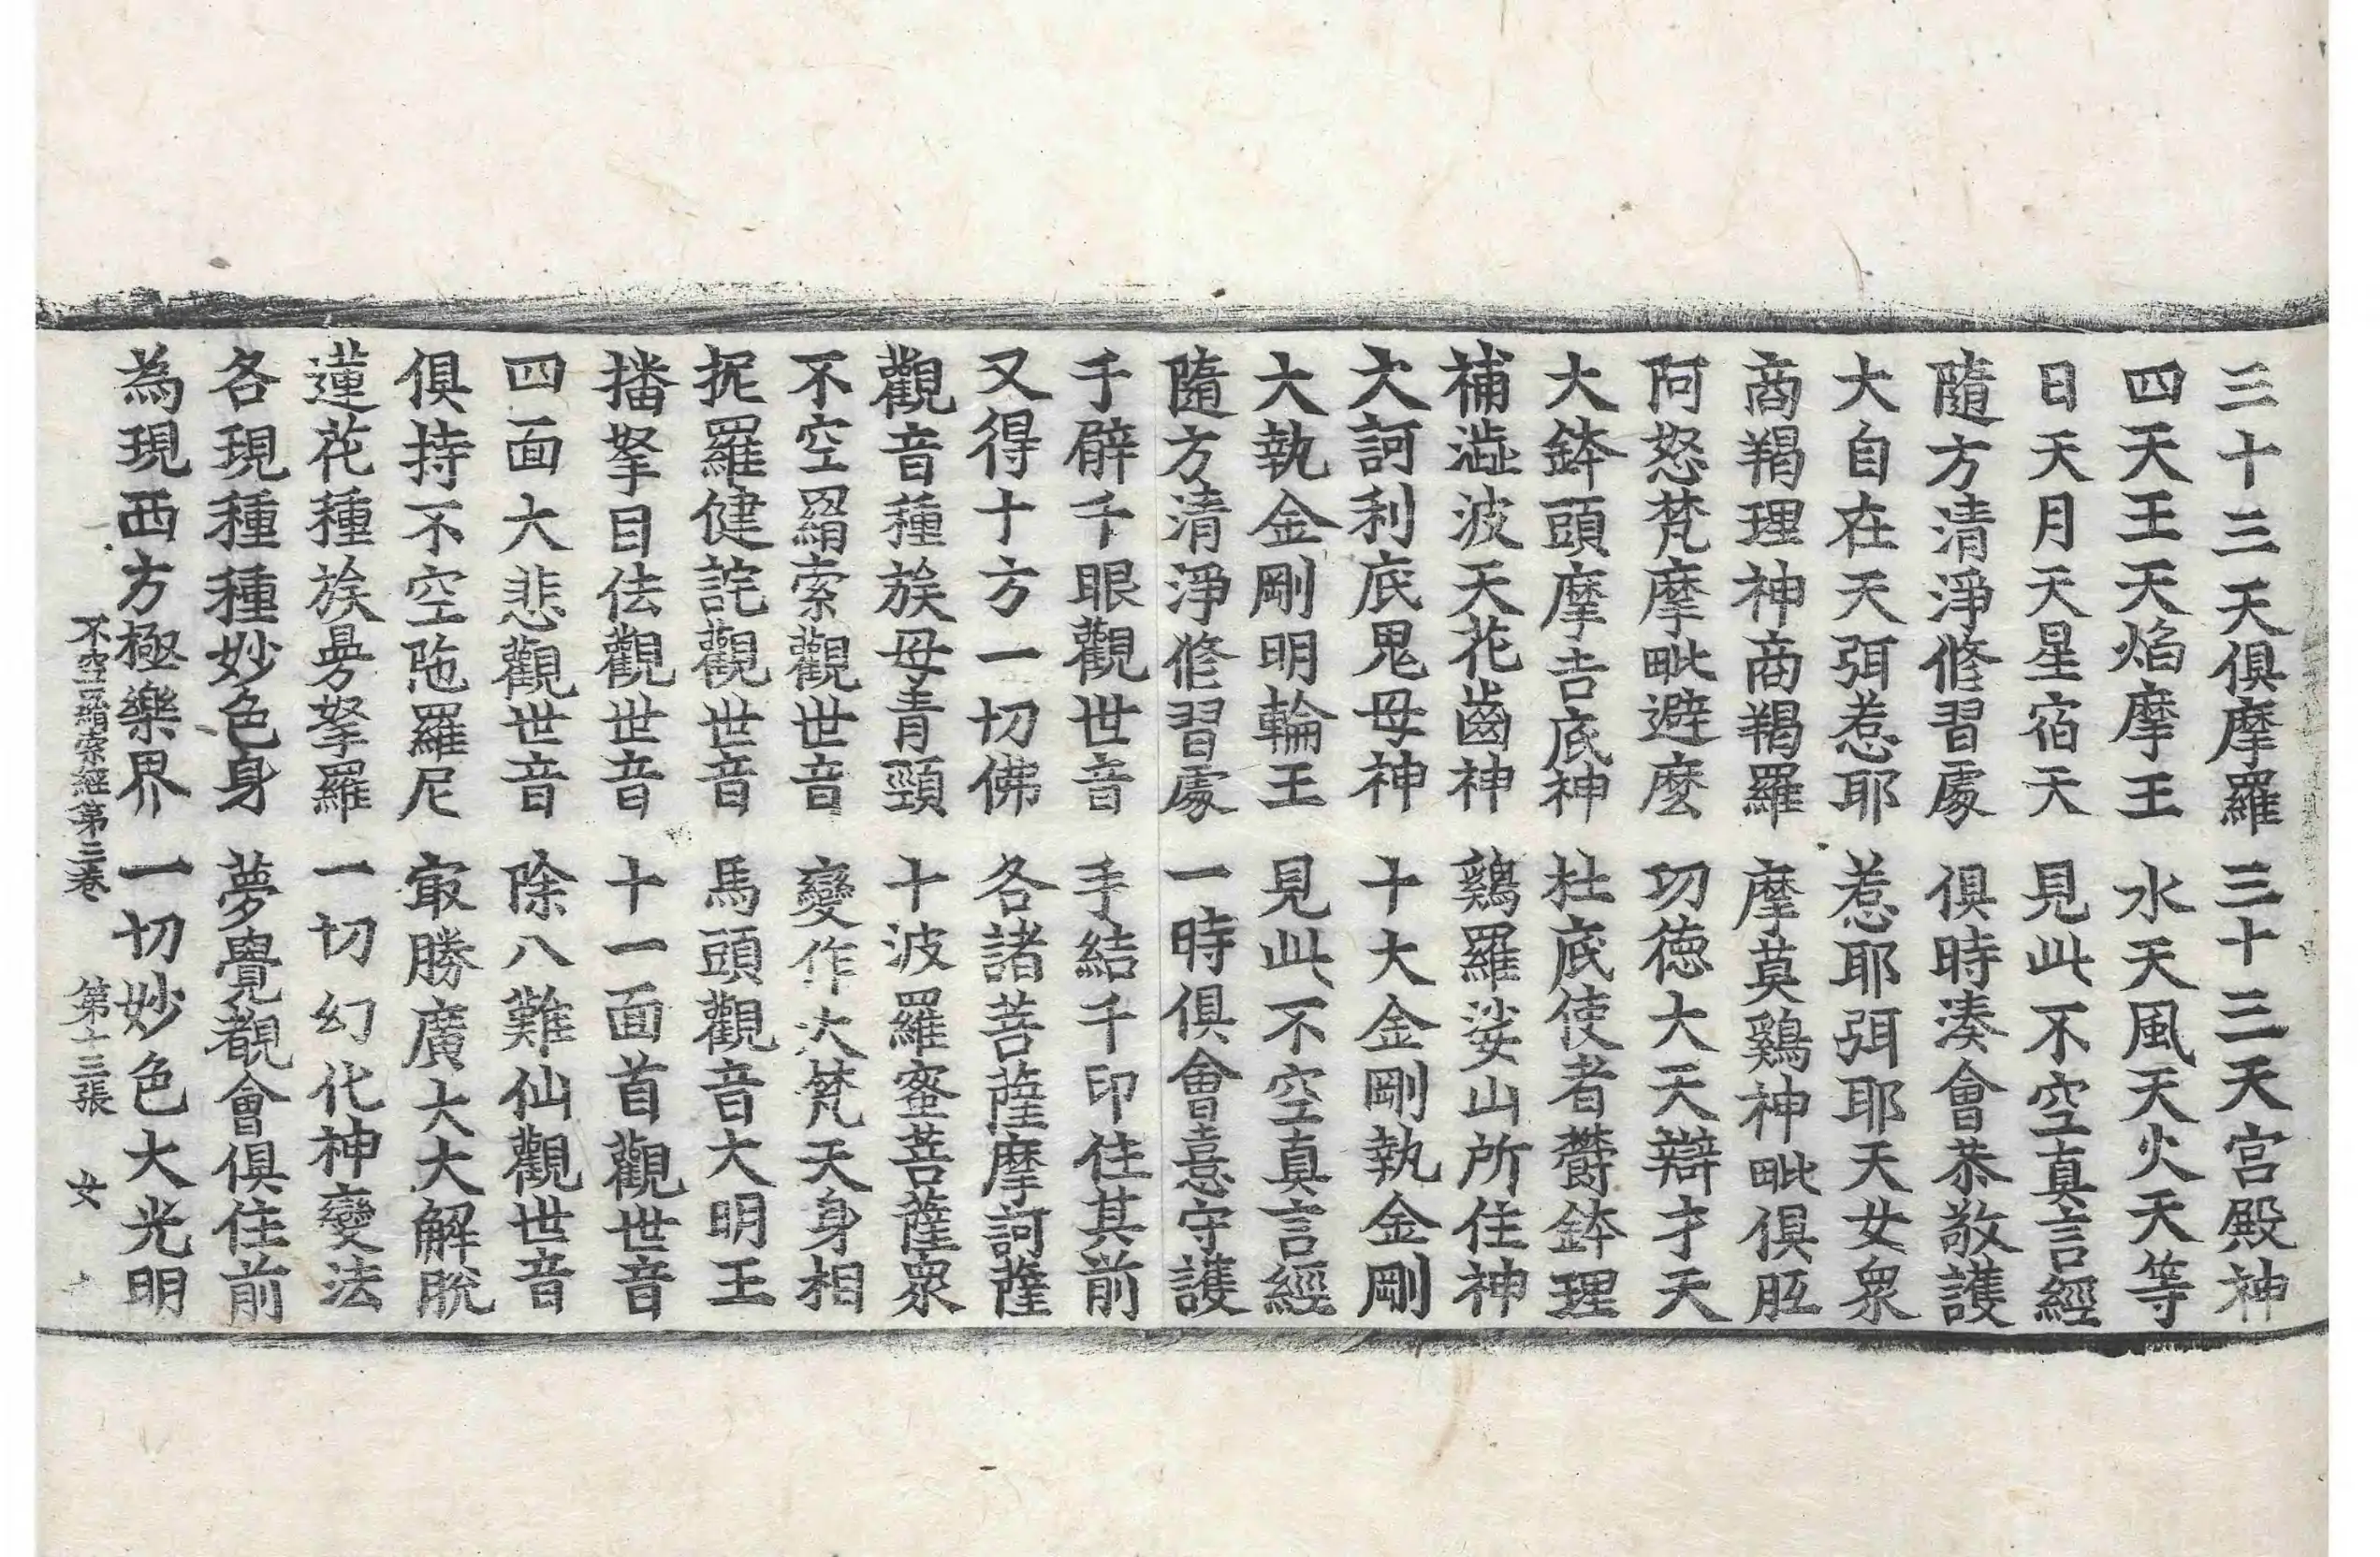 三十三天俱摩羅　三十三天宮殿神
四天王天焰摩王　水天風天火天等
日天月天星宿天　見此不空真言經
隨方清淨修習處　俱時湊會恭敬護
大自在天弭惹耶　惹耶弭耶天女衆
商羯理神商羯羅　摩莫鷄神毗俱胝
阿怒梵摩毗避麼　功德大天辯才天
大鉢頭摩吉底神　杜底使者欝鉢理
補澁波天花齒神　鷄羅娑山所住神
大訶利底鬼母神　十大金剛執金剛
大執金剛明輪王　見此不空真言經
隨方清淨修習處　一時俱會憙守護
千臂千眼觀世音　手結千印住其前
又得十方一切佛　各諸菩薩摩訶薩
觀音種族母青頸　十波羅蜜菩薩衆
不空羂索觀世音　變作大梵天身相
抳羅健詫觀世音　馬頭觀音大明王
播拏目佉觀世音　十一面首觀世音
四面大悲觀世音　除八難仙觀世音
俱持不空陁羅尼　㝡勝廣大大解脫
蓮花種族曼拏羅　一切幻化神變法
各現種種妙色身　夢覺覩會俱住前
為現西方極樂界　一切妙色大光明
不空羂索經第三卷　第十三張　女